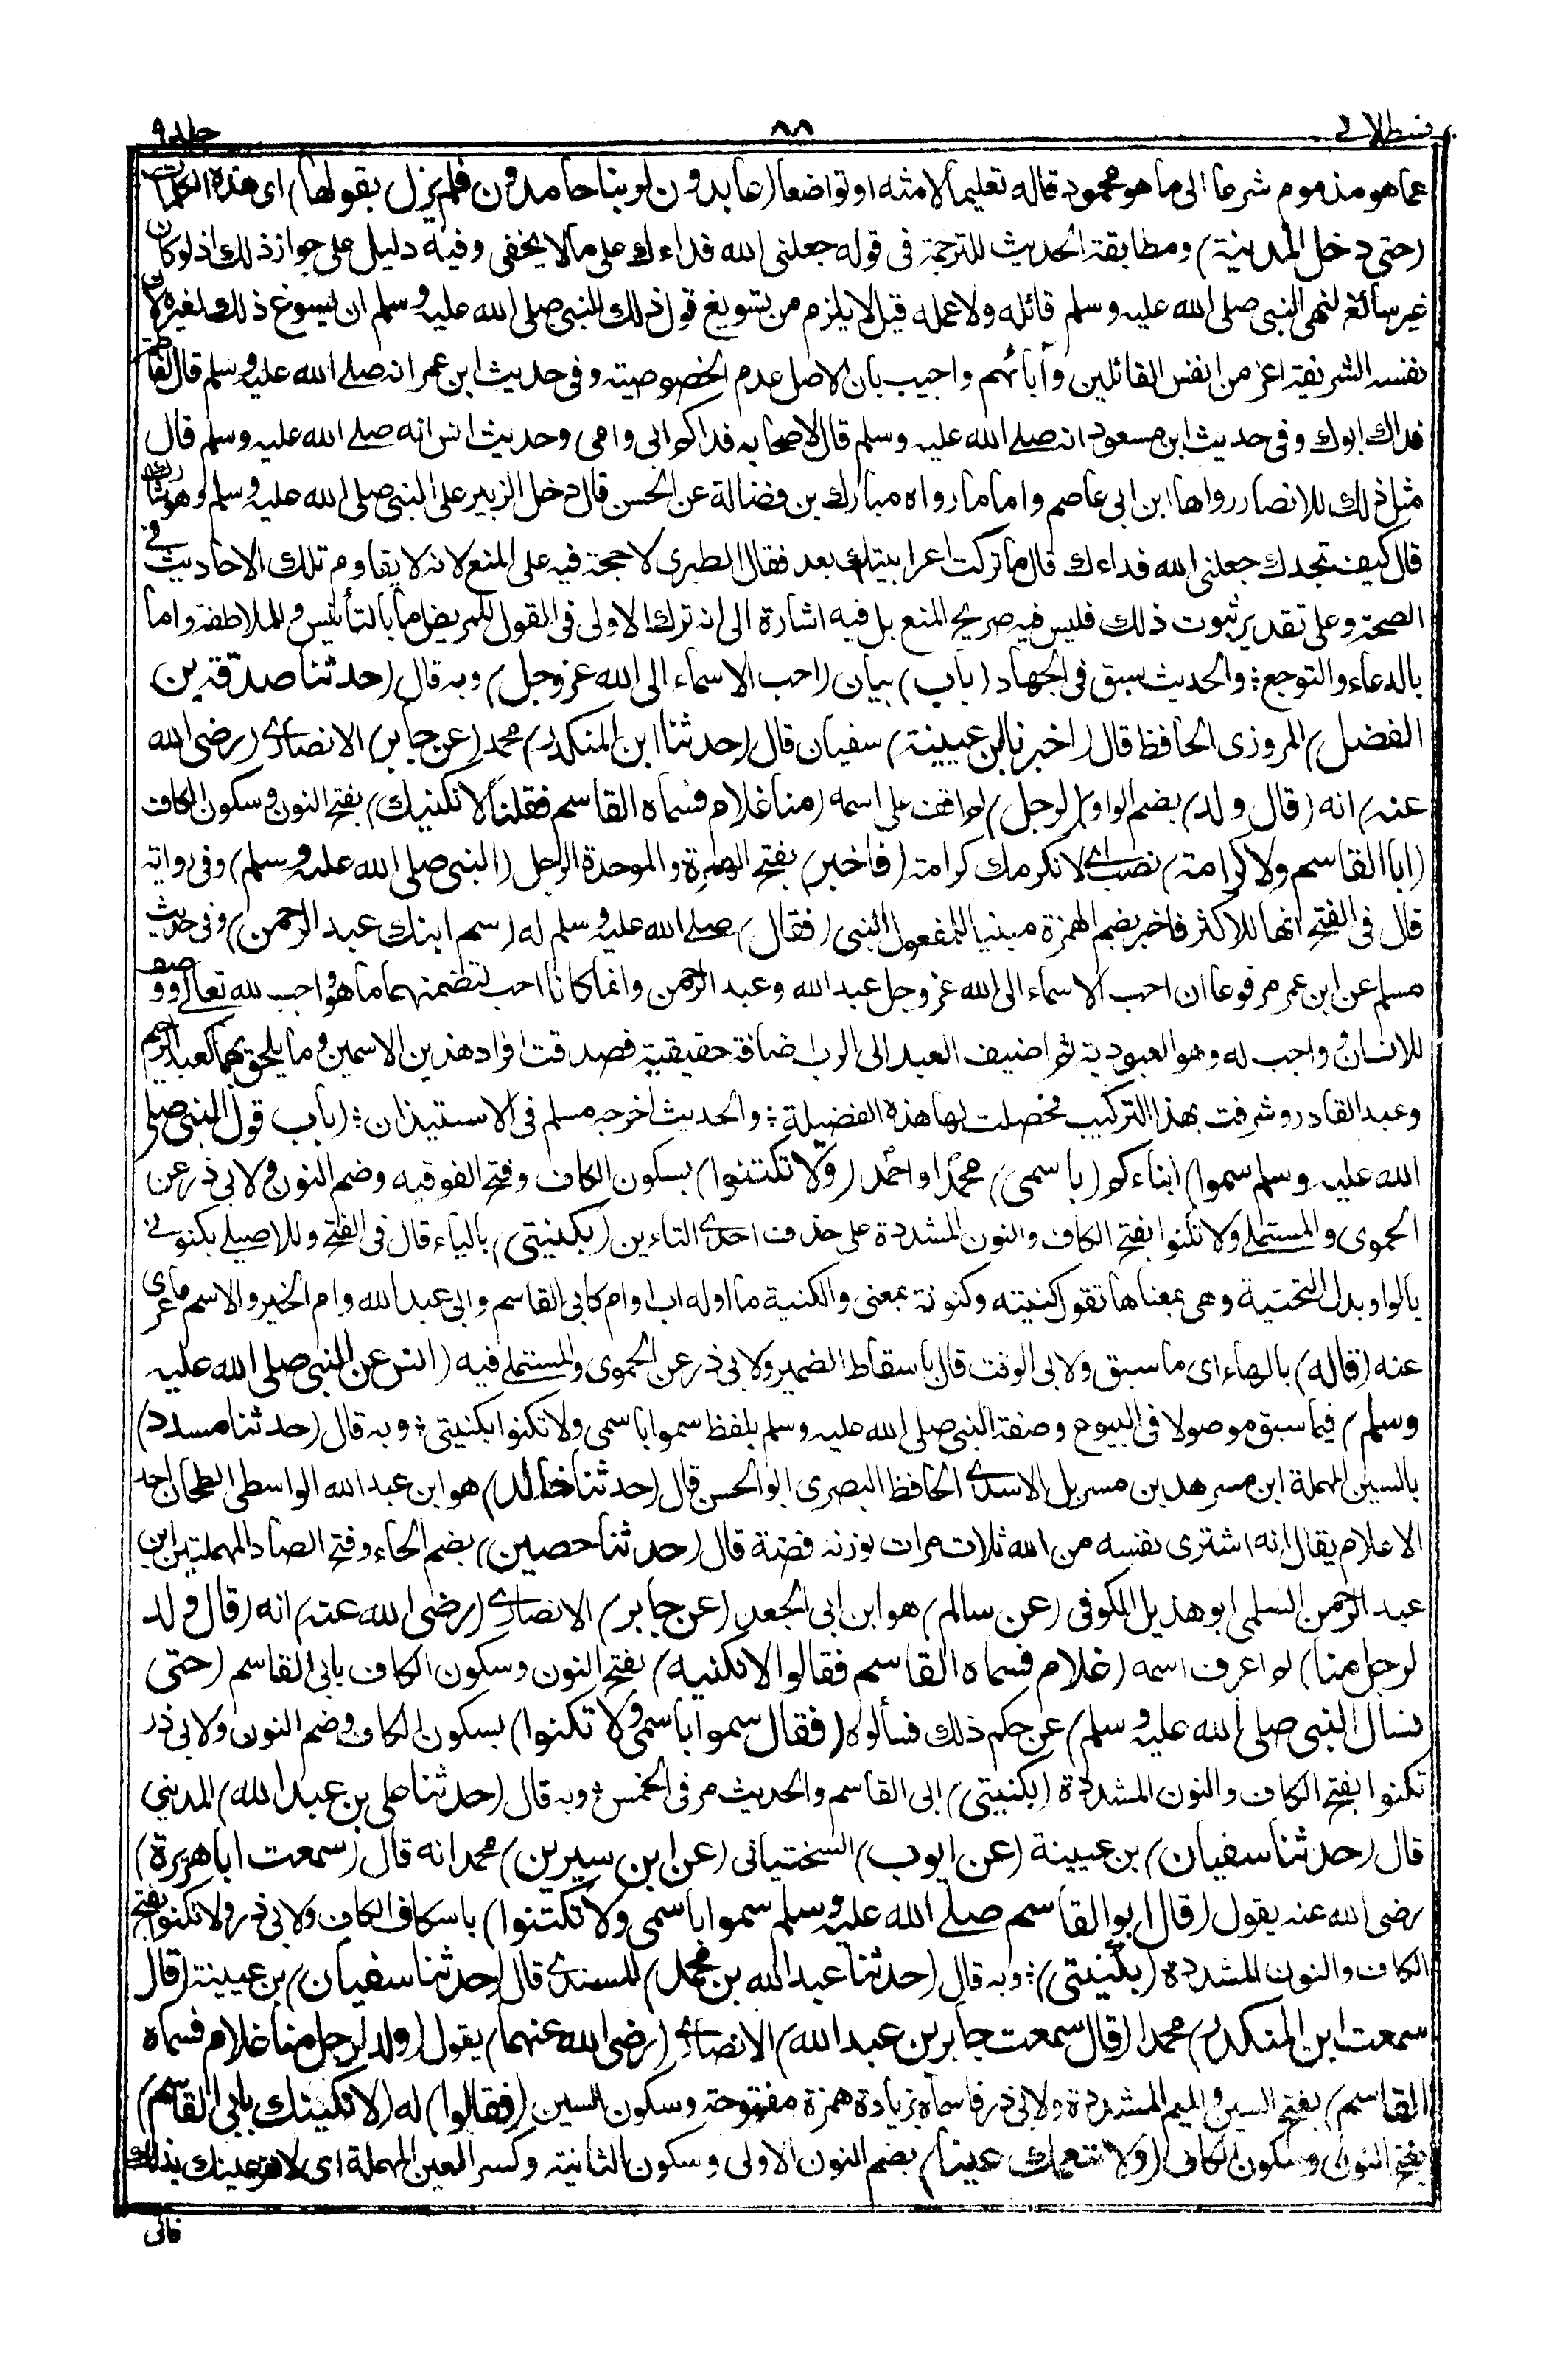 قسطلانی ٨٨ جلد ٩
عما هو مذموم شرعا الى ما هو محمود قاله تعليما لامته او تواضعا (عابدون لربنا حامدون فلم يزل يقولها) اى هذه الكلمات
(حتى دخل المدينة) ومطابقة الحديث للترجمة فى قوله جعلنى الله فداءك على ما لا يخفى وفيه دليل على جواز ذلك اذ لو كان
غير سائغ لنهى النبى صلى الله عليه وسلم قائله ولاعمله قيل لا يلزم من تسويغ قول ذلك للنبى صلى الله عليه وسلم ان يسوغ ذلك لغيره لان
نفسه الشريفة اعز من انفس القائلين وآبائهم واجيب بان الاصل عدم الخصوصية وفى حديث ابن عمر انه صلے الله عليه وسلم قال لفاطمة
فداك ابوك وفى حديث ابن مسعود انه صلے الله عليه وسلم قال لاصحابه فداكم ابى وامى وحديث انس انه صلے الله عليه وسلم قال
مثل ذلك للانصار رواها ابن ابى عاصم واما ما رواه مبارك بن فضالة عن الحسن قال دخل الزبير على النبى صلى الله عليه وسلم وهو شاك
قال كيف تجدك جعلنى الله فداءك قال ما تركت اعرابيتك بعد فقال الطبرى لا حجة فيه على المنع لانه لا يقاوم تلك الاحاديث فى
الصحة وعلى تقدير ثبوت ذلك فليس فيه صريح المنع بل فيه اشارة الى انه ترك الاولى فى القول للمريض اما بالتأنيس والملاطفة واما
بالدعاء والتوجع ؛ والحديث سبق فى الجهاد (باب) بيان (احب الاسماء الى الله عز وجل) وبه قال (حدثنا صدقة بن
الفضل) المروزى الحافظ قال (اخبرنا ابن عيينة) سفيان قال (حدثنا ابن المنكدر) محمد (عن جابر) الانصارے (رضى الله
عنه) انه (قال ولد) بضم الواو (لرجل) لم اقف على اسمه (منا غلام فسماه القاسم فقلنا لا نكنيك) بفتح النون وسكون الكاف
(ابا القاسم ولا كرامة) نصب اے لا نكرمك كرامة (فاخبر) بفتح الهمزة والموحدة الرجل (النبى صلى الله عليه وسلم) وفى رواية
قال فى الفتح انها للاكثر فاخبر بضم الهمزة مبنيا للمفعول النبى (فقال) صلے الله عليه وسلم له (سم ابنك عبد الرحمن) وفى حديث
مسلم عن ابن عمر مرفوعا ان احب الاسماء الى الله عز وجل عبد الله وعبد الرحمن وانما كانا احب لتضمنهما ما هو واجب لله تعالے ووصف
للانسان وواجب له وهو العبودية ثم اضيف العبد الى الرب اضافة حقيقية فصدقت افراد هذين الاسمين وما يلحق بهما كعبد الرحيم
وعبد القادر وشرفت بهذا التركيب فحصلت لها هذه الفضيلة ؛ والحديث اخرجه مسلم فى الاستيذان ؛ (باب قول النبى صلى
الله عليه وسلم سموا) ابناءكم (باسمى) محمدا او احمد (ولا تكتنوا) بسكون الكاف وفتح الفوقيه وضم النون ولابى ذر عن
الحموى والمستملے ولا تكنوا بفتح الكاف والنون المشددة على حذف احدے التاءين (بكنيتى) بالياء قال فى الفتح وللاصيلے بكنوتى
بالواو بدل التحتية وهى بمعناها تقول كنيته وكنوته بمعنى والكنية ما اوله اب او ام كابى القاسم وابى عبد الله وام الخير والاسم ما عرى
عنه (قاله) بالهاء اى ما سبق ولابى الوقت قال باسقاط الضمير ولابى ذر عن الحموى والمستملے فيه (انس عن النبى صلى الله عليه
وسلم) فيما سبق موصولا فى البيوع وصفة النبى صلى الله عليه وسلم بلفظ سموا باسمى ولا تكنوا بكنيتى ؛ وبه قال (حدثنا مسدد)
بالسين المهملة ابن مسرهد بن مسربل الاسدے الحافظ البصرى ابو الحسن قال (حدثنا خالد) هو ابن عبد الله الواسطى الطحان احد
الاعلام يقال انه اشترى نفسه من الله ثلاث مرات بوزنه فضة قال (حدثنا حصين) بضم الحاء وفتح الصاد المهملتين ابن
عبد الرحمن السلمى ابو هذيل الكوفى (عن سالم) هو ابن ابى الجعد (عن جابر) الانصارے (رضى الله عنه) انه (قال ولد
لرجل منا) لم اعرف اسمه (غلام فسماه القاسم فقالوا لا نكنيه) بفتح النون وسكون الكاف بابى القاسم (حتى
نسأل النبى صلى الله عليه وسلم) عن حكم ذلك فسألوه (فقال سموا باسمى ولا تكنوا) بسكون الكاف وضم النون ولابى ذر
تكنوا بفتح الكاف والنون المشددة (بكنيتى) ابى القاسم والحديث مر فى الخمس ؛ وبه قال (حدثنا على بن عبد الله) المدينى
قال (حدثنا سفيان) بن عيينة (عن ايوب) السختيانى (عن ابن سيرين) محمد انه قال (سمعت ابا هريرة)
رضى الله عنه يقول (قال ابو القاسم صلے الله عليه وسلم سموا باسمى ولا تكتنوا) باسكان الكاف ولابى ذر ولا تكنوا بفتح
الكاف والنون المشددة (بكنيتى) ؛ وبه قال (حدثنا عبد الله بن محمد) المسندے قال (حدثنا سفيان) بن عيينة (قال
سمعت ابن المنكدر) محمدا (قال سمعت جابر بن عبد الله) الانصارے (رضى الله عنهما) يقول (ولد لرجل منا غلام فسماه
القاسم) بفتح السين والميم المشددة ولابى ذر فاسماه بزيادة همزة مفتوحة وسكون السين (فقالوا) له (لا نكنيك بابى القاسم)
بفتح النون وسكون الكاف (ولا ننعمك عينا) بضم النون الاولى وسكون الثانية وكسر العين المهملة اى لا نقر عينك بذلك
فاتى